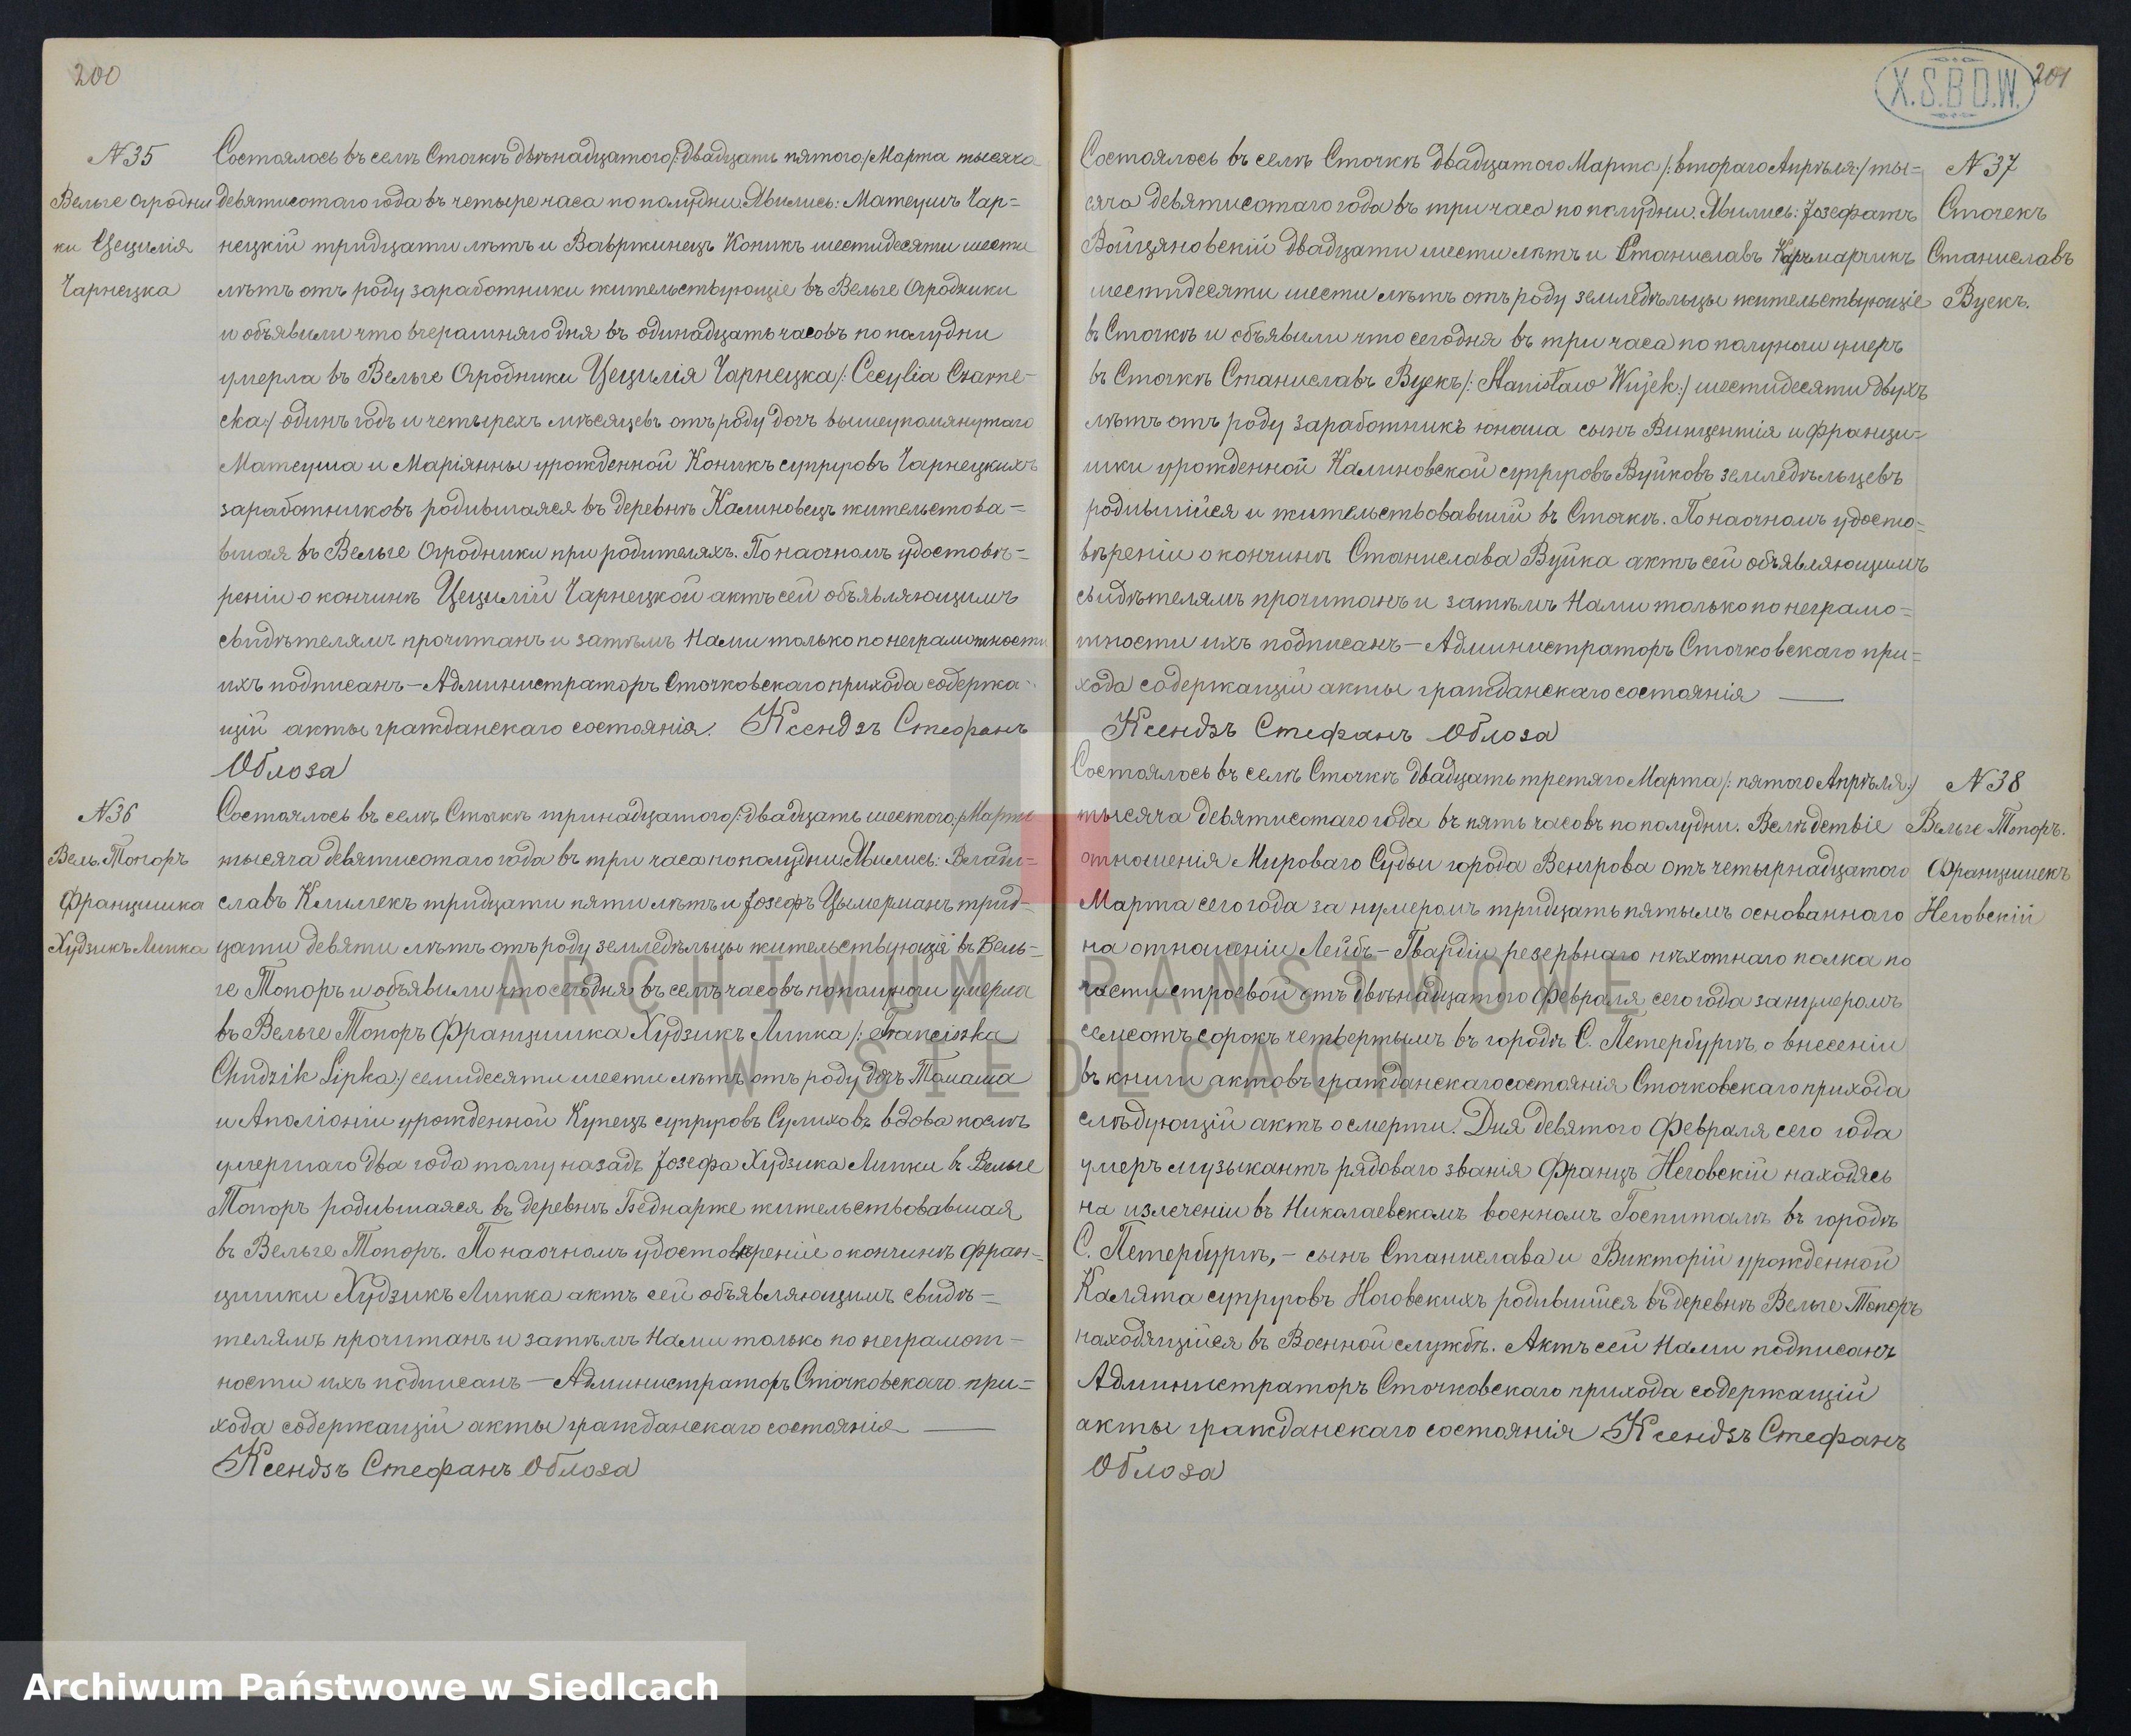 200
N 35
Вельге Огродни
ки Цецилія
Чарнецка
Состоялось въ селѣ Сточкѣ двѣнадцатого /:двадцать пятого/ Марта тысяча
девятисотаго года въ четыре часа по полудни. Явились: Матеушъ Чар=
нецкій тридцати лѣтъ и Вавржинецъ Коникъ шестидесяти шести
лѣтъ отъ роду заработники жительствующіе въ Вельге Огродники
и объявили что вчерашняго дня въ одинадцать часовъ по полудни
умерла въ Вельге Огродники Цецилія Чарнецка /: Cecylia Czarne-
cka:/ одинъ годъ и четырехъ мѣсяцевъ отъ роду дочь вышеупомянутаго
Матеуша и Маріянны урожденной Коникъ супруговъ Чарнецкихъ
заработниковъ родившаяся въ деревнѣ Калиновецъ жительствова=
вшая въ Вельге Огродники при родителяхъ. По наочномъ удостовѣ=
реніи о кончинѣ Цециліи Чарнецкой актъ сей объявляющимъ
свидѣтелямъ прочитанъ и затѣмъ Нами только по неграмотности
ихъ подписанъ — Администраторъ Сточковскаго прихода содержа-
щій акты гражданскаго состоянія. Ксендзъ Стефанъ
Облоза
N 36
Вель. Топоръ
Францишка
Худзикъ Липка
Состоялось въ селѣ Сточкѣ тринадцатого /:двадцать шестого:/ Марта
тысяча девятисотаго года въ три часа по полудни Явились: Влади=
славъ Климекъ тридцати пяти лѣтъ и Іозефъ Цымерманъ трид=
цати девяти лѣтъ отъ роду земледѣльцы жительствующіе въ Вель=
ге Топоръ и объявили что сегодня въ семъ часовъ по полуночи умерла
въ Вельге Топоръ Францишка Худзикъ Липка /: Franciszka
Chudzik Lipka:/ семидесяти шести лѣтъ отъ роду дочь Томаша
и Аполіоніи урожденной Купецъ супруговъ Сулиховъ вдова послѣ
умершаго два года тому назадъ Іозефа Худзика Липки въ Вельге
Топоръ родившаяся въ деревнѣ Беднарже жительствовавшая
въ Вельге Топоръ. По наочномъ удостовѣреніи о кончинѣ Фран=
цишки Худзикъ Липка актъ сей объявляющимъ свидѣ=
телямъ прочитанъ и затѣмъ Нами только по неграмот-
ности ихъ подписанъ — Администраторъ Сточковскаго при=
хода содержащій акты гражданскаго состоянія
Ксендзъ Стефанъ Облоза
X.S.B.D.W.
201
N 37
Сточекъ
Станиславъ
Вуекъ.
Состоялось въ селѣ Сточкѣ двадцатого Марта /: втораго Апрѣля:/ ты=
сяча девятисотаго года въ три часа по полудни. Явились: Іозефатъ
Войцяновскій двадцати шести лѣтъ и Станиславъ Карчмарчикъ
шестидесяти шести лѣтъ отъ роду земледѣльцы жительствующіе
въ Сточкѣ и объявили что сегодня въ три часа по полуночи умеръ
въ Сточкѣ Станиславъ Вуекъ /: Stanisław Wujek:/ шестидесяти двухъ
лѣтъ отъ роду заработникъ юноша сынъ Винцентія и Франци=
шки урожденной Калиновской супруговъ Вуйковъ земледѣльцевъ
родившійся и жительствовавшій въ Сточкѣ. По наочномъ удосто=
вѣреніи о кончинѣ Станислава Вуйка актъ сей объявляющимъ
свидѣтелямъ прочитанъ и затѣмъ Нами только по неграмо=
тности ихъ подписанъ — Администраторъ Сточковскаго при=
хода содержащій акты гражданскаго состоянія
Ксендзъ Стефанъ Облоза
N 38
Вельге Топоръ.
Францишекъ
Неговскій
Состоялось въ селѣ Сточкѣ двадцать третяго Марта /: пятого Апрѣля:/
тысяча девятисотаго года въ пять часовъ по полудни. Велѣдствіе
отношенія Мироваго Судьи города Венгрова отъ четырнадцатого
Марта сего года за нумеромъ тридцать пятымъ основаннаго
на отношеніи Лейбъ-Гвардіи резервнаго пѣхотнаго полка по
части строевой отъ двѣнадцатого Февраля сего года за нумеромъ
семсотъ сорокъ четвертымъ въ городѣ С. Петербургѣ, о внесеніи
въ книги актовъ гражданскаго состоянія Сточковскаго прихода
слѣдующій актъ о смерти. Дня девятого Февраля сего года
умеръ музыкантъ рядоваго званія Францъ Неговскій находясь
на излеченіи въ Николаевскомъ военномъ Госпиталѣ въ городѣ
С. Петербургѣ, — сынъ Станислава и Викторіи урожденной
Калята супруговъ Неговскихъ родившійся въ деревнѣ Вельге Топоръ
находящійся въ Военной службѣ. Актъ сей Нами подписанъ
Администраторъ Сточковскаго прихода содержащій
акты гражданскаго состоянія Ксендзъ Стефанъ
Облоза
ARCHIWUM PAŃSTWOWE
W SIEDLCACH
Archiwum Państwowe w Siedlcach